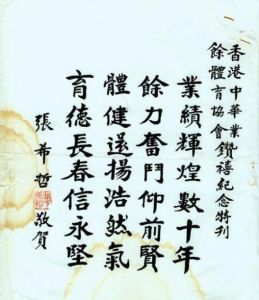 香港中華業
餘體育協會鑽禧紀念特刊
業績輝煌數十年
餘力奮鬥仰前賢
體健還揚浩然氣
育德長春信永堅
張希哲
敬賀